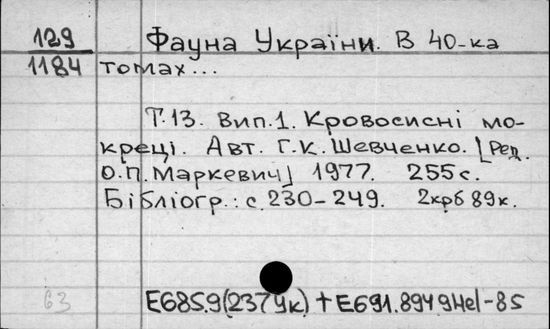 129 Фауна України. В 40-ка
1184 томах...
Т.13. Вип.1. Кровосисні мо-
креці. Авт. Г.К. Шевченко. [Ред.
О.П. Маркевич] 1977. 255с.
Бібліогр.: с. 230-249. 2крб 89к.
63 Е685.9(2379к) + Е691.8949Hel-85